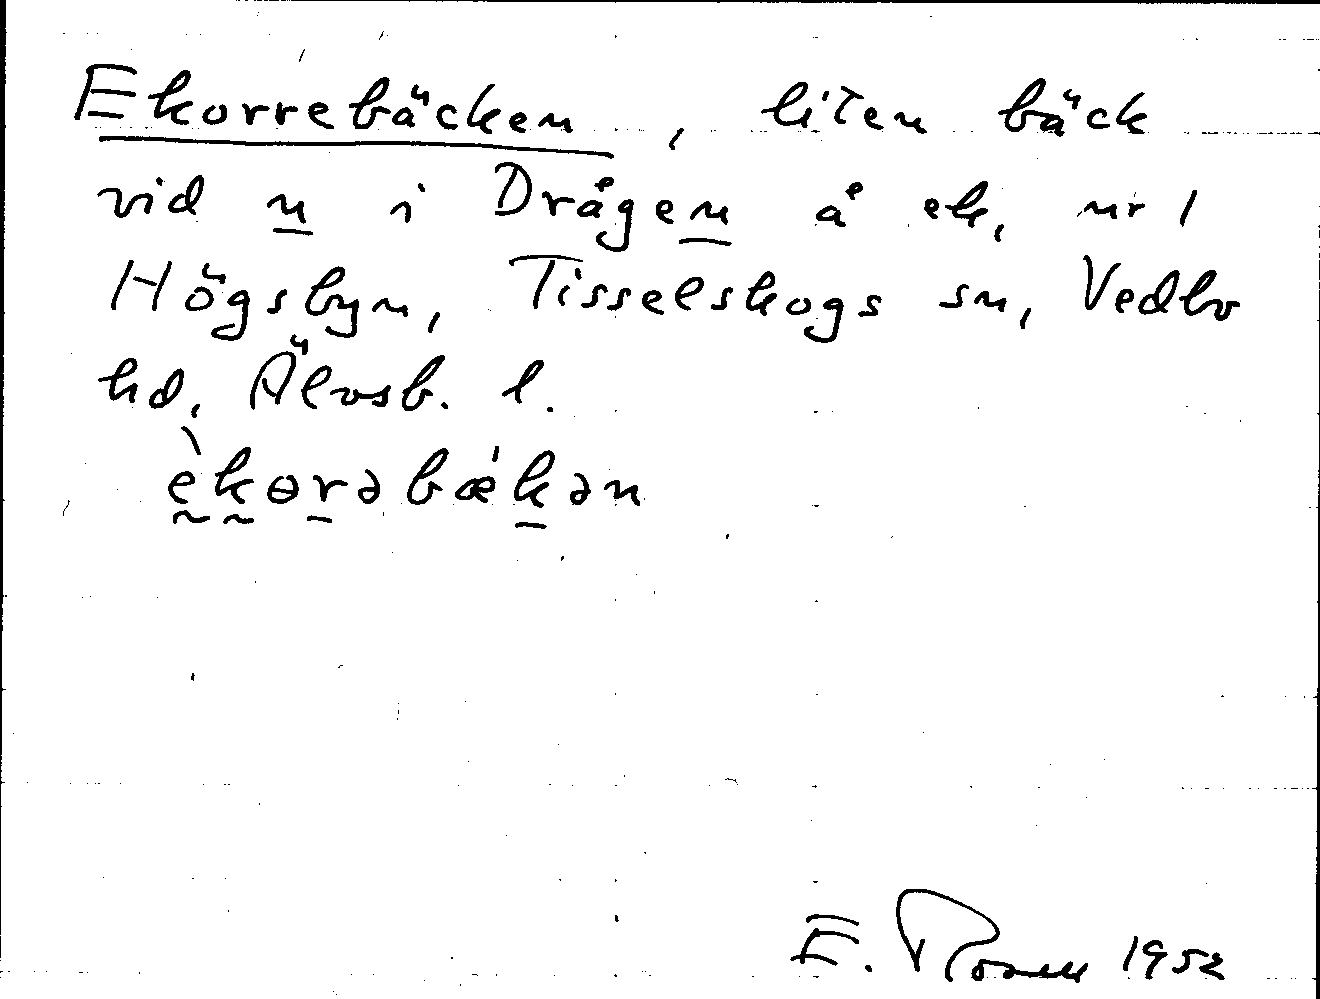 Ekorrebäcken, liten bäck
vid n i Drågen å ek, nr 1
Högsbyn, Tisselskogs sn, Vedbo
hd, Älvsb. l.
èkɵrəbǽkən
E. Rosell 1952